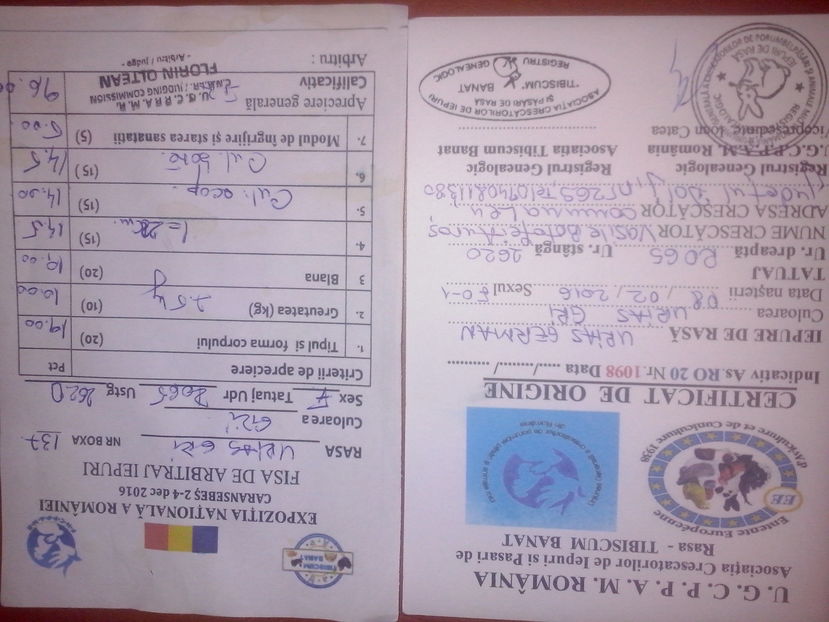 U. G. C. P. P. A. M. ROMÂNIA
Asociația Crescatorilor de Iepuri si Pasari de
Rasa - TIBISCUM BANAT
Entente Européenne
EE
d'Aviculture et de Cuniculture 1938
CERTIFICAT DE ORIGINE
Indicativ As. RO 20 Nr. 1098 Data ....../....../..........
IEPURE DE RASĂ URIAS GERMAN
Culoarea URIAS GRI
Data nașterii 08 / 02 / 2016 Sexul F 0-1
TATUAJ
Ur. dreaptă RO65 Ur. stângă 2620
NUME CRESCĂTOR Vasile
ADRESA CRESCĂTOR comuna Leu
Judetul Dolj, nr 265
Registrul Genealogic Registrul Genealogic
U.G.C.P.P.A.M. România Asociatia Tibiscum Banat
Vicepreședinte, Ioan Catea
ASOCIATIA CRESCATORILOR DE IEPURI
SI PASARI DE RASA
"TIBISCUM" BANAT
REGISTRU GENEALOGIC
TIBISCUM
BANAT
EXPOZIȚIA NAȚIONALĂ A ROMÂNIEI
CARANSEBEȘ 2-4 dec 2016
FISA DE ARBITRAJ IEPURI
RASA URIAS GRI NR BOXA 137
Culoarea GRI
Sex F Tatuaj Udr RO65 Ustg 2620
Criterii de apreciere Pct
1. Tipul si forma corpului (20) 19.00
2. Greutatea (kg) 7.5 kg (10) 10.00
3 Blana (20)
4. (15) 14,5
5. Cul. acop. (15) 14,00
6. Cul. (15) 14,5
7. Modul de îngrijire și starea sanatatii (5) 5.00
Apreciere generală
Calificativ
U. G. C. P. P. A. M. R.
ARBITRU / JUDGING COMMISSION
FLORIN OLTEAN
- Arbitru / judge -
Arbitru :